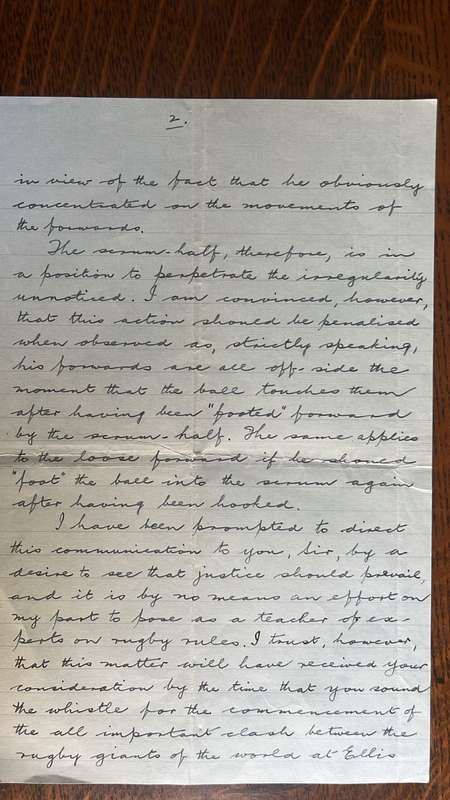 2.
in view of the fact that he obviously
concentrated on the movements of
the forwards.
The scrum-half, therefore, is in
a position to perpetrate the irregularity
unnoticed. I am convinced, however,
that this action should be penalised
when observed as, strictly speaking,
his forwards are all off-side the
moment that the ball touches them
after having been "footed" forward
by the scrum-half. The same applies
to the loose forward if he should
"foot" the ball into the scrum again
after having been hooked.
I have been prompted to direct
this communication to you, Sir, by a
desire to see that justice should prevail,
and it is by no means an effort on
my part to pose as a teacher of ex-
perts on rugby rules. I trust, however,
that this matter will have received your
consideration by the time that you sound
the whistle for the commencement of
the all important clash between the
rugby giants of the world at Ellis